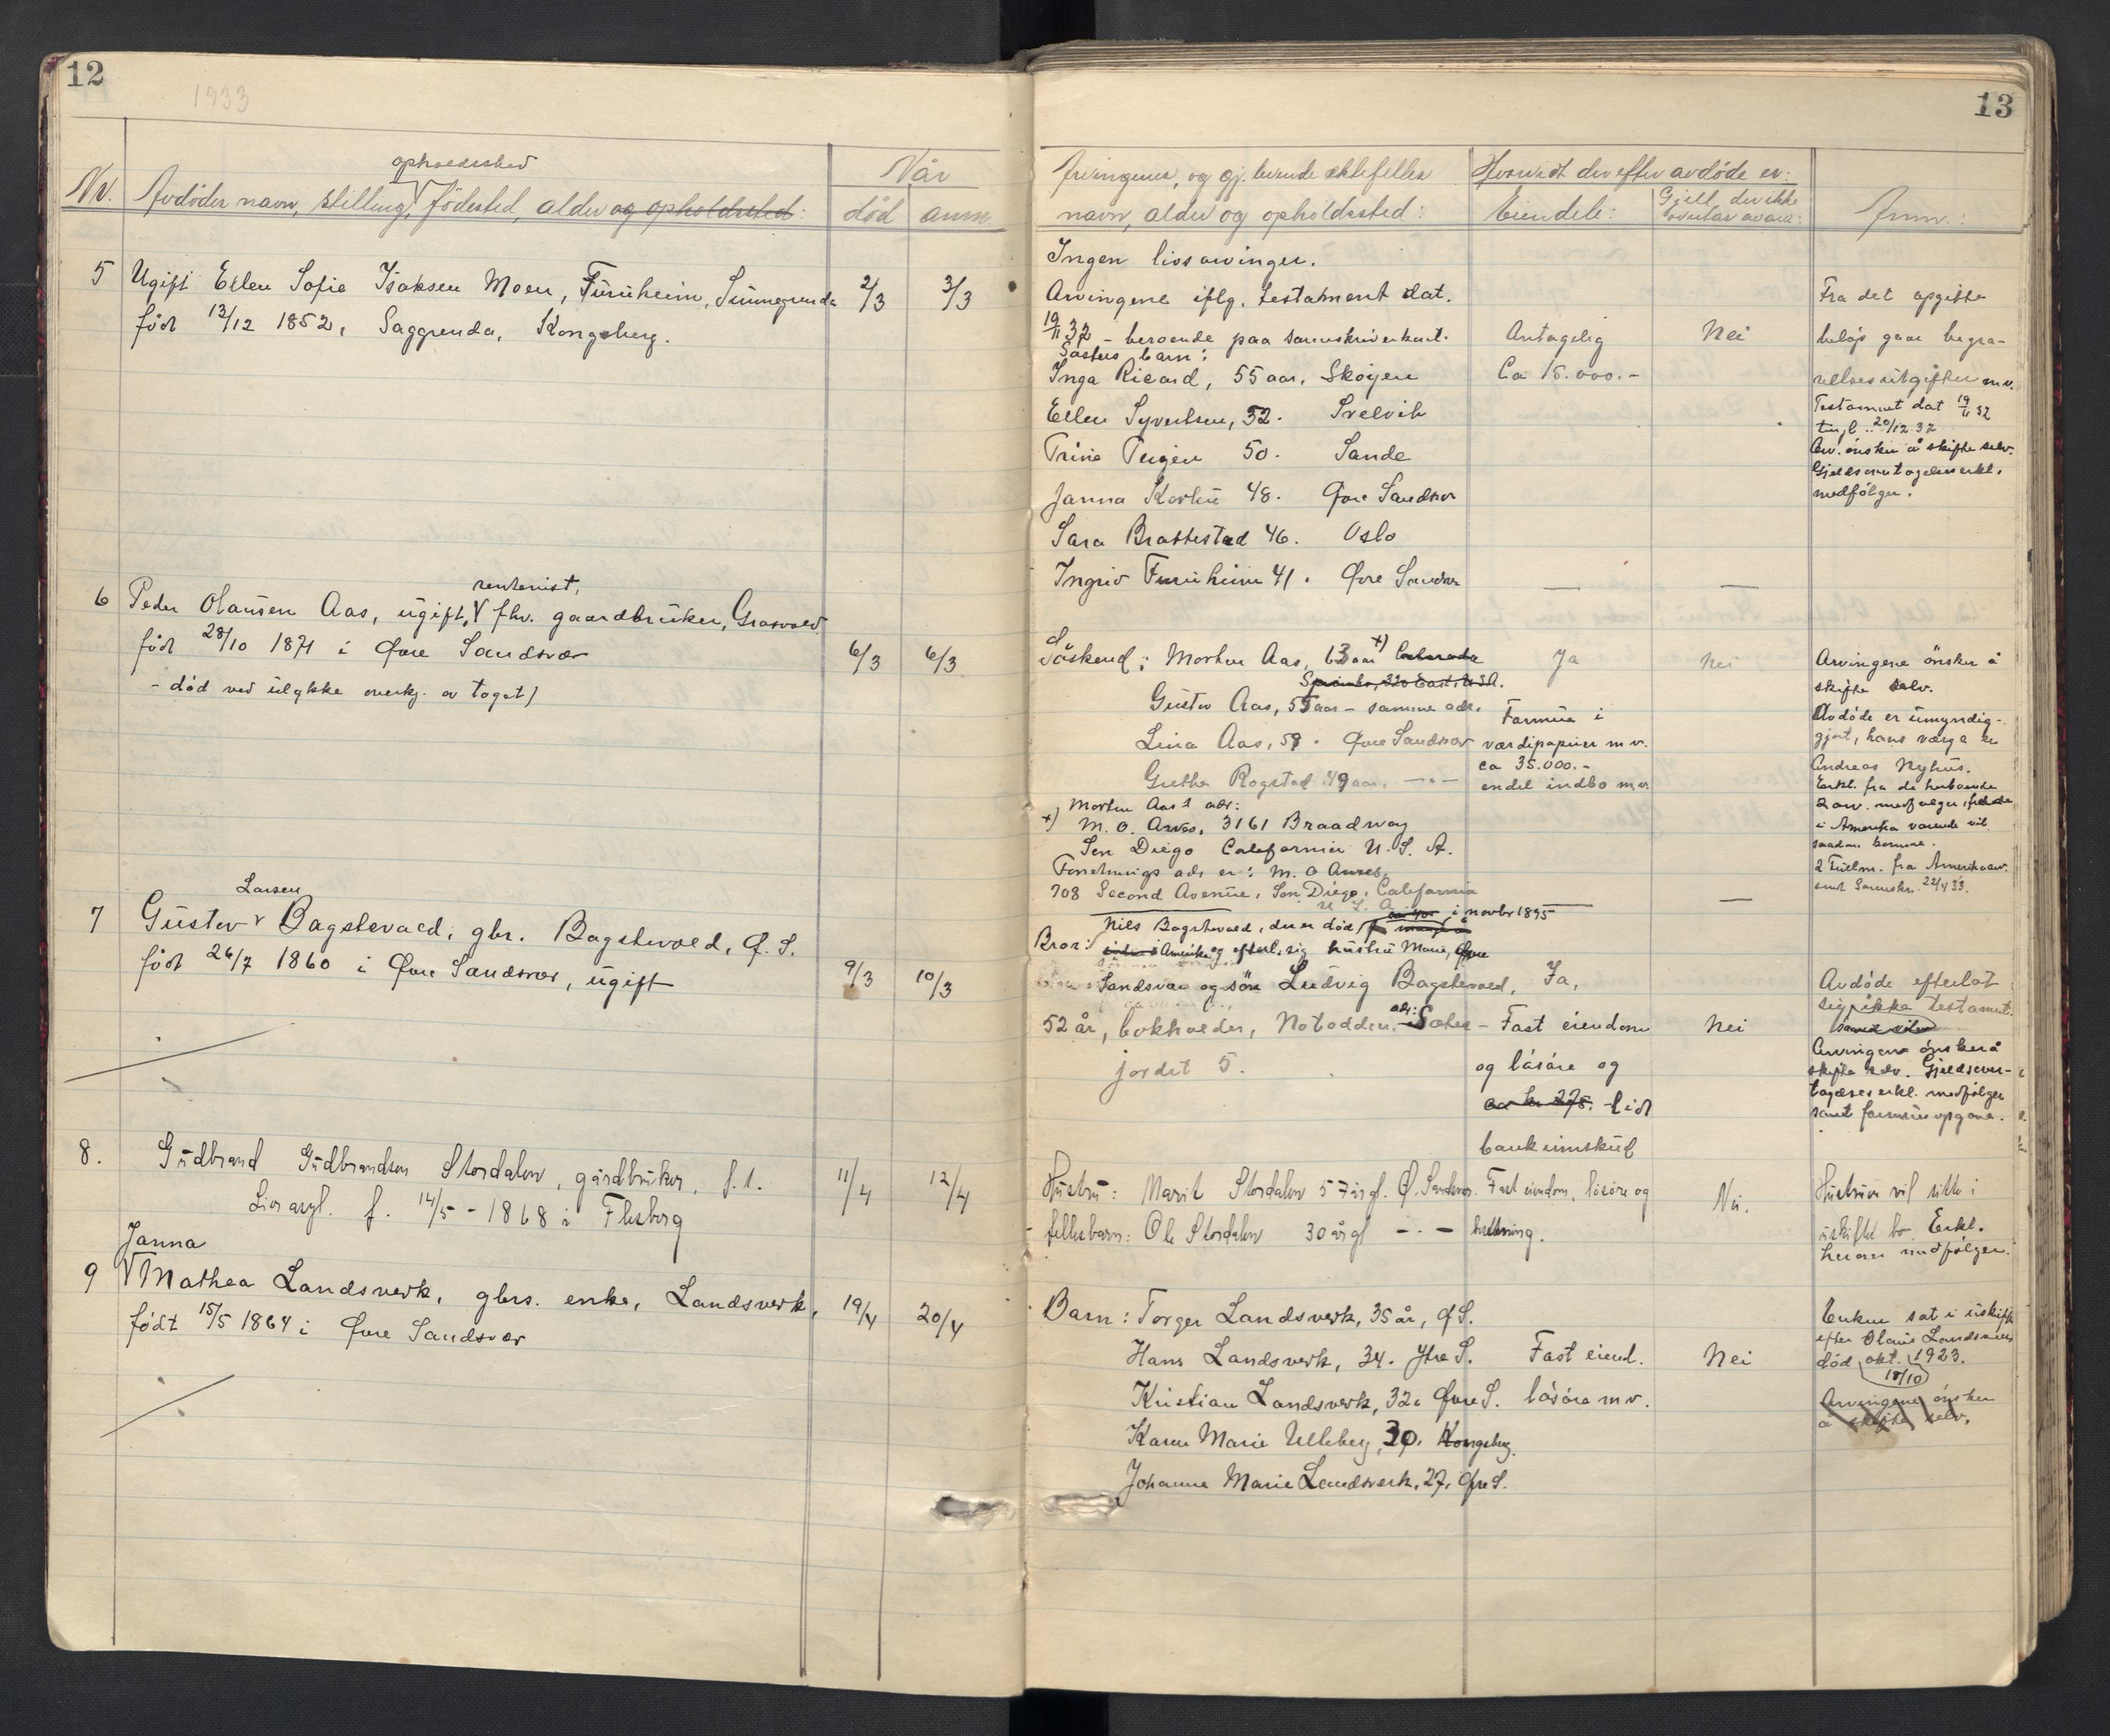 12
1933
opholdssted
Nr. Avdødes navn, stilling, V fødested, alder og opholdssted:
Når
død anm
5 Ugift Ellen Sofie Isaksen Moen, Furuheim, Sunnegrenda
født 13/12 1852, Saggrenda, Kongsberg.
2/3 3/3
rentenist,
6 Peder Olausen Aas, ugift, V fhv. gaardbruker, Grosvold
født 28/10 1871 i Øvre Sandsvær
6/3 6/3
- død ved ulykke overkj. av toget)
Larsen
7 Gustav V Bagstevold, gbr. Bagstevold, Ø. S.
født 26/7 1860 i Øvre Sandsvær, ugift
9/3 10/3
8. Gudbrand Gudbrandsen Stordalen, gårdbruker, f. t.
f. 14/5 - 1868 i Flesberg
11/4 12/4
Janna
9 V Mathea Landsverk, gbrs. enke, Landsverk,
født 15/5 1864 i Øvre Sandsvær
19/4 20/4
13
Arvingenes, og gj. levende ektefelles
navn, alder og opholdssted:
Hvorvidt der efter avdøde er:
Eiendele:
Gjeld, der ikke
overtas av arv.:
Anm.:
Ingen livsarvinger.
Arvingene iflg. testament dat.
19/11 32 - beroende paa sorenskriverkont.
Søsters barn:
Inga Ricard, 55 aar, Skøyen
Ellen Syvertsen, 52. Svelvik
Trine Teigen 50. Sande
Janna Kortne 48. Øvre Sandsvær
Sara Brattestad 46. Oslo
Ingrid Furuheim 41. Øvre Sandsvær
Antagelig
Ca 15.000.-
Nei
Fra det opgitte
beløp gaar begra-
velsesutgifter m.v.
Testament dat 19/11 32
tingl. 20/12 32
Arv. ønsker å skifte selv.
Gjeldsovertagelseserkl.
medfølger.
Søskend: Morten Aas, 63 aar x) Colorado
Springs, 320 East, U.S.A.
Gustav Aas, 55 aar - samme adr.
Lina Aas, 59. Øvre Sandsvær
Grethe Rogstad 49 aar. - " -
x) Morten Aas's adr:
M. O. Awes, 3161 Broadway
San Diego California U. S. A.
Forretnings adr. er: M. O Awes,
708 Second Avenue, San Diego, California
U. S. A.
Ja
Formue i
værdipapirer m v.
ca 35.000.-
endel indbo m.v.
Nei
Arvingene ønsker å
skifte selv.
Avdøde er umyndig-
gjort, hans værge er
Andreas Nyhus.
Erkl. fra de herboende
2 arv. medfølger, fra de
i Amerika værende vil
saadan komme.
2 Fullm. fra Amerikaarv.
Sorenskr. 22/4 33.
Nils Bagstevold, der er død i novbr 1895
Bror: i Amerika og efterl. sig hustru Marie, Øvre
Sandsvær og søn Ludvig Bagstevold,
52 år, bokholder, Notodden. adr: Sæter-
jordet 5.
Ja,
Fast eiendom
og løsøre og
ca kr 275. litt
bankinnskud
Nei
Avdøde efterlot
sig ikke testament.
Arvingene ønsker å
skifte selv. Gjeldsover-
tagelseserkl. medfølger
samt formuesopgave.
Hustru: Marit Stordalen 57 årgl. Ø. Sandsvær.
fellesbarn: Ole Stordalen 30 årgl - " -
Fast eiendom, løsøre og
besetning.
Nei.
Hustruen vil sitte i
uskiftet bo. Erkl.
herom medfølger.
Barn: Torger Landsverk, 35 år, Ø S.
Hans Landsverk, 34. Ytre S.
Kristian Landsverk, 32. Øvre S.
Karen Marie Ulleberg, 30. Kongsberg.
Johanne Marie Landsverk, 27, Øvre S.
Fast eiend.
løsøre m v.
Nei
Enken sat i uskifte
efter Olaus Landsverk
død okt. 1923.
18/10
Arvingene ønsker
å skifte selv.